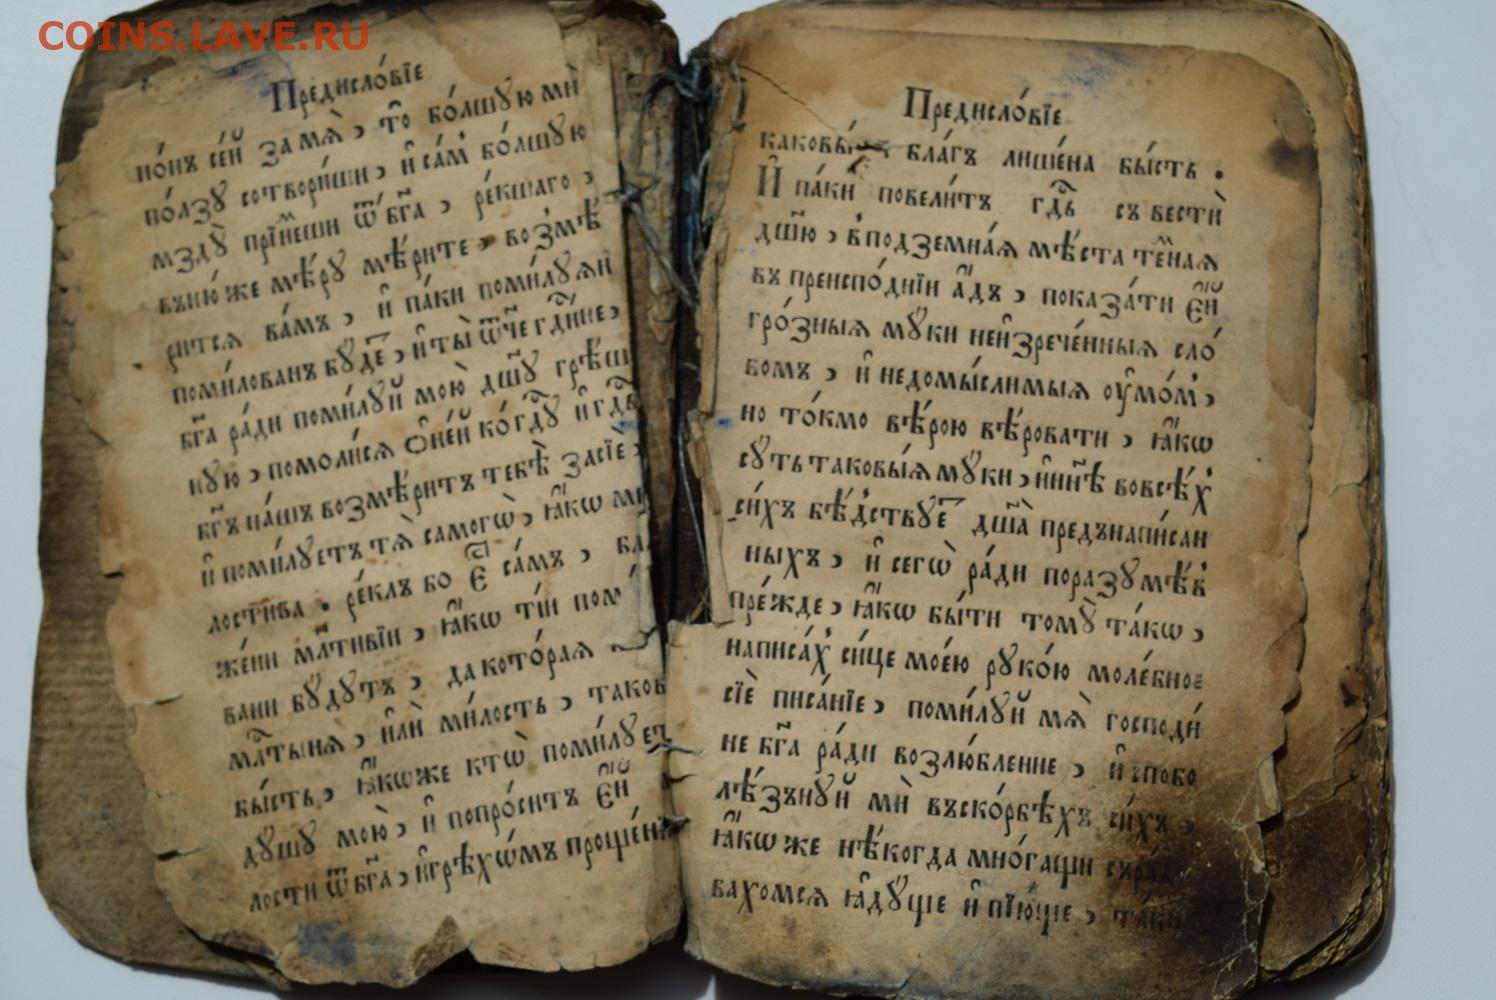 COINS.LAVE.RU
Предисло́вїе
но́нъ се́й за мѧ̀, то̑ бо́лшꙋю ми
по́лзꙋ сотвори́ши, и҆ са́м бо́лшꙋю
мздꙋ̀ прїи́меши ѿ бг҃а, ре́кшаго,
въню́же мѣ́рꙋ мѣ́рите, возмѣ
рится ва́мъ, и҆ па́ки поми́лꙋѧй
поми́лованъ бꙋ́де, и҆ ты̀ ѿч҃е гд҃и́не,
бг҃а ра́ди поми́лꙋй мою̀ дш҃ꙋ грѣ́ш
нꙋю, помоли́сѧ ѡ҆ не́й ко́ гд҃ꙋ и҆ гд҃ь
бг҃ъ на́шъ возмѣ́ритъ тебѣ̀ за сїѐ,
и҆ поми́лꙋетъ тѧ̀ самого̀, ꙗ҆́кѡ ми
лостива. ре́клъ бо є҆ст са́мъ, бл
же́ни мл҃тивїи, ꙗ҆́кѡ ті́и пом
вани бꙋ́дꙋтъ, да кото́раѧ
мл҃тынѧ, и҆лѝ ми́лость, таков
бы́сть, ꙗ҆́кѡже ктѡ̀ поми́лꙋет
дꙋ́шꙋ мою̀, и҆ попро́ситъ є҆́й
лости ѿ бг҃а, и҆ грѣхѡ́мъ проще́нї
Предисло́вїе
бла́гъ лише́на бы́сть.
И҆ па́ки повели́тъ гд҃ь съвестѝ
дш҃ю, в подзе́мнаѧ мѣ́ста те́мнаѧ
въ преиспо́днїи а҆́дъ, показа́ти є҆́й
гро́зныѧ мꙋ́ки неизрече́нныѧ сло́
вомъ, и҆ недомы́слимыѧ ᲂу҆мо́м,
но то́кмо вѣ́рою вѣ́ровати, ꙗ҆́кѡ
сꙋ́ть таковы́ѧ мꙋ́ки, и҆ ны́нѣ во всѣ́х
си́хъ бѣ́дствꙋе дш҃а̀ предънапи́сан
ныхъ, и҆ сегѡ̀ ра́ди поразꙋмѣ́в
пре́жде, ꙗ҆́кѡ бы́ти томꙋ̀ та́кѡ,
написа́х си́це мое́ю рꙋко́ю моле́бное
сїѐ писа́нїе, поми́лꙋй мѧ̀ господи́
не бг҃а ра́ди возлю́бленне, и҆ спобо
лѣ́знꙋй мѝ въ ско́рбѣхъ си́хъ,
ꙗ҆́кѡже нѣ́когда мно́гащи
вахомсѧ ꙗ҆дꙋ́ще и҆ пїю́ще, та́кѡ